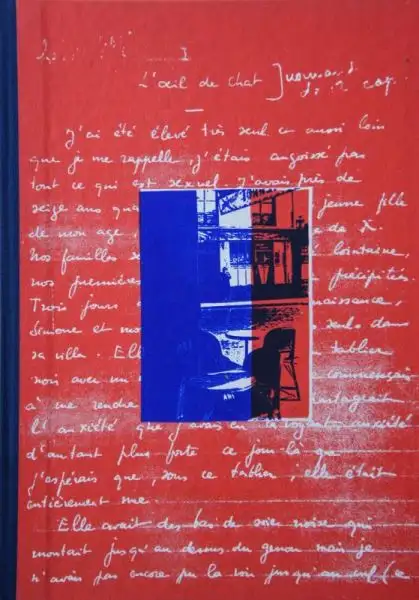 I
L'œil de chat
J'ai été élevé très seul et aussi loin
que je me rappelle, j'étais angoissé par
tout ce qui est sexuel. J'avais près de
seize ans qua jeune fille
de mon age e de X.
Nos familles lointaine,
nos premières précipités
Trois jours naissance,
Simone et mo seuls dans
sa villa. Ell tablier
noir avec un commençais
à me rendre artageait
l'anxiété que j'avais en la voyant, anxiété
d'autant plus forte ce jour-là que
j'espérais que, sous ce tablier, elle était
entièrement nue.
Elle avait des bas de soie noire qui
montait jusqu'au dessus du genou mais je
n'avais pas encore pu la voir jusqu'au cul (ce